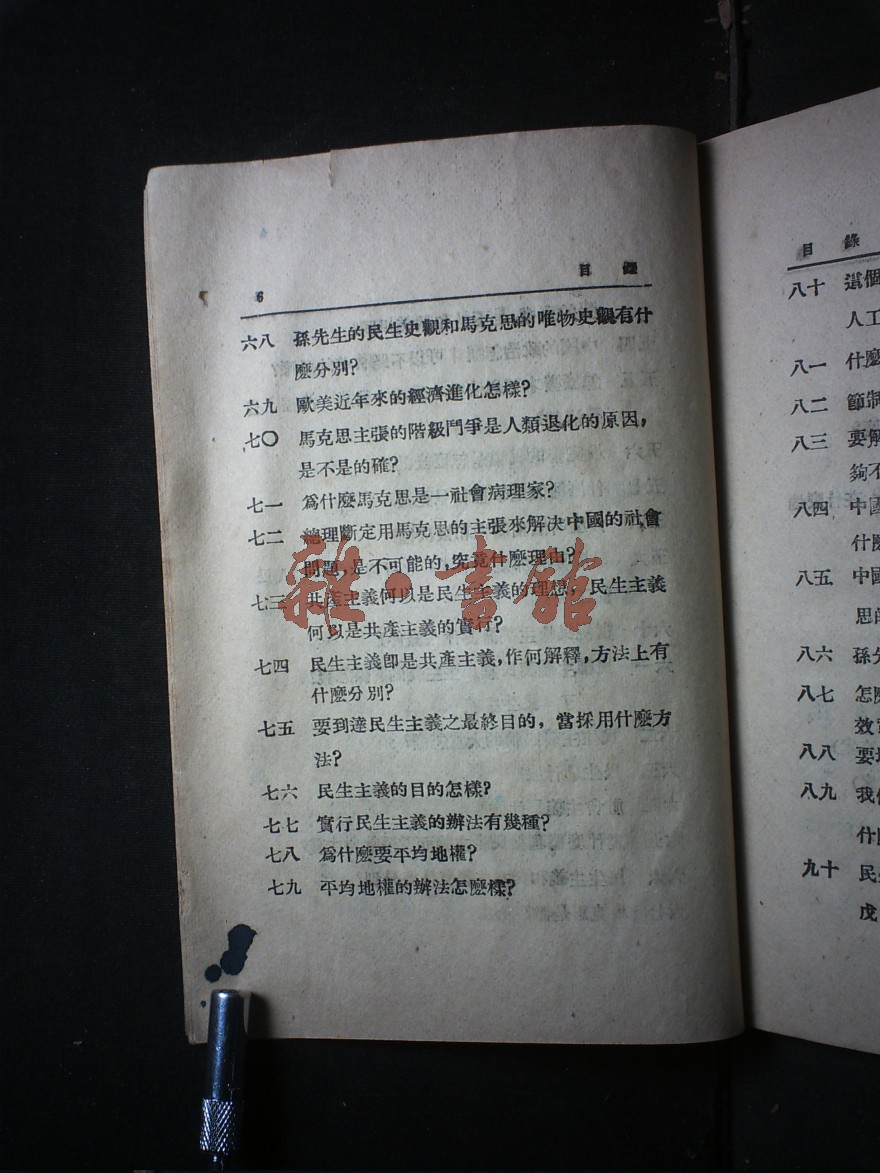 6 目錄
六八 孫先生的民生史觀和馬克思的唯物史觀有什
麼分別?
六九 歐美近年來的經濟進化怎樣?
七〇 馬克思主張的階級鬥爭是人類退化的原因,
是不是的確?
七一 爲什麼馬克思是一社會病理家?
七二 總理斷定用馬克思的主張來解决中國的社會
問題,是不可能的,究竟什麼理由?
七三 共產主義何以是民生主義的理想,民生主義
何以是共產主義的實行?
七四 民生主義卽是共產主義,作何解釋,方法上有
什麼分別?
七五 要到達民生主義之最終目的,當採用什麼方
法?
七六 民生主義的目的怎樣?
七七 實行民生主義的辦法有幾種?
七八 爲什麼要平均地權?
七九 平均地權的辦法怎麼樣?
雜·書館
目錄
八十 這個
人工
八一 什麼
八二 節制
八三 要解
夠不
八四 中國
什麼
八五 中國
思的
八六 孫先
八七 怎麼
效
八八 要
八九 我們
什麼
九十 民生
戊